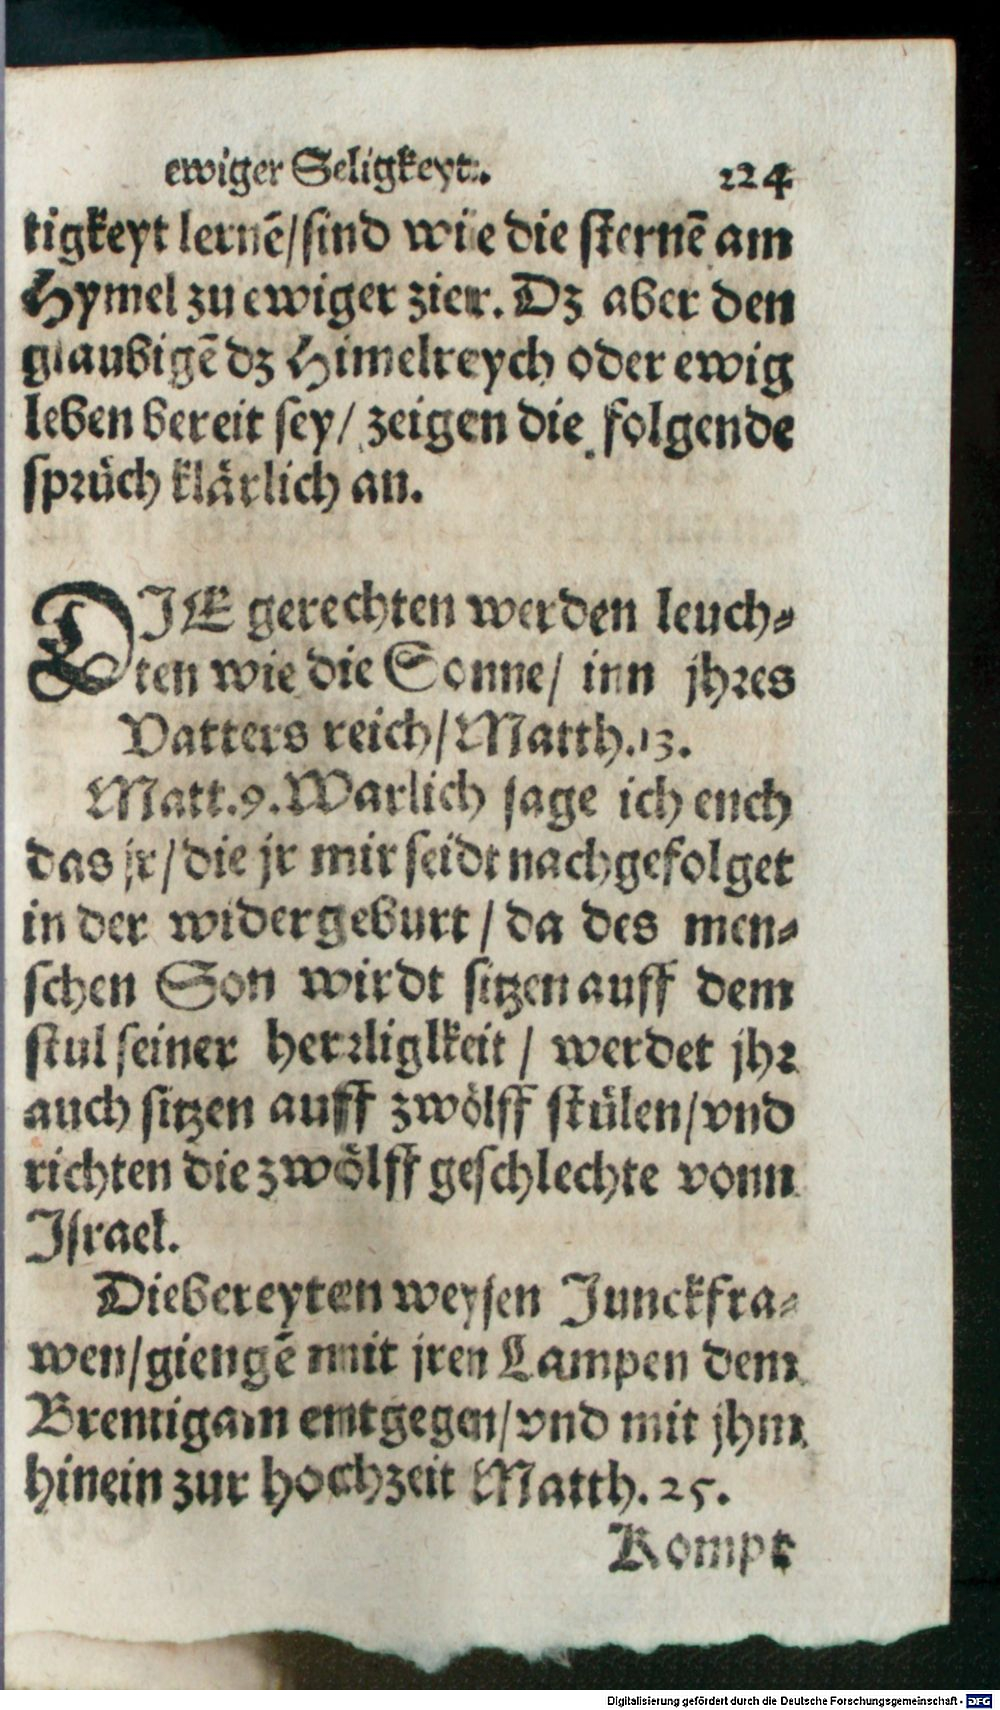 ewiger Seligkeyt. 124
tigkeyt lernē/sind wie die sternē am
Hymel zu ewiger zier. Dz aber den
glaubigē dz Himelreych oder ewig
leben bereit sey/ zeigen die folgende
sprüch klärlich an.
DIE gerechten werden leuch⸗
ten wie die Sonne/ inn jhres
Vatters reich/Matth.13.
Matt.9.Warlich sage ich euch
das jr/die jr mir seidt nachgefolget
in der widergeburt/da des men⸗
schen Son wirdt sitzen auff dem
stul seiner herrliglkeit/ werdet jhr
auch sitzen auff zwölff stülen/vnd
richten die zwölff geschlechte vonn
Israel.
Die bereyten weysen Junckfra⸗
wen/giengē mit jren Lampen dem
Breutigam entgegen/vnd mit jhm
hinein zur hochzeit Matth. 25.
Kompt
Digitalisierung gefördert durch die Deutsche Forschungsgemeinschaft - DFG